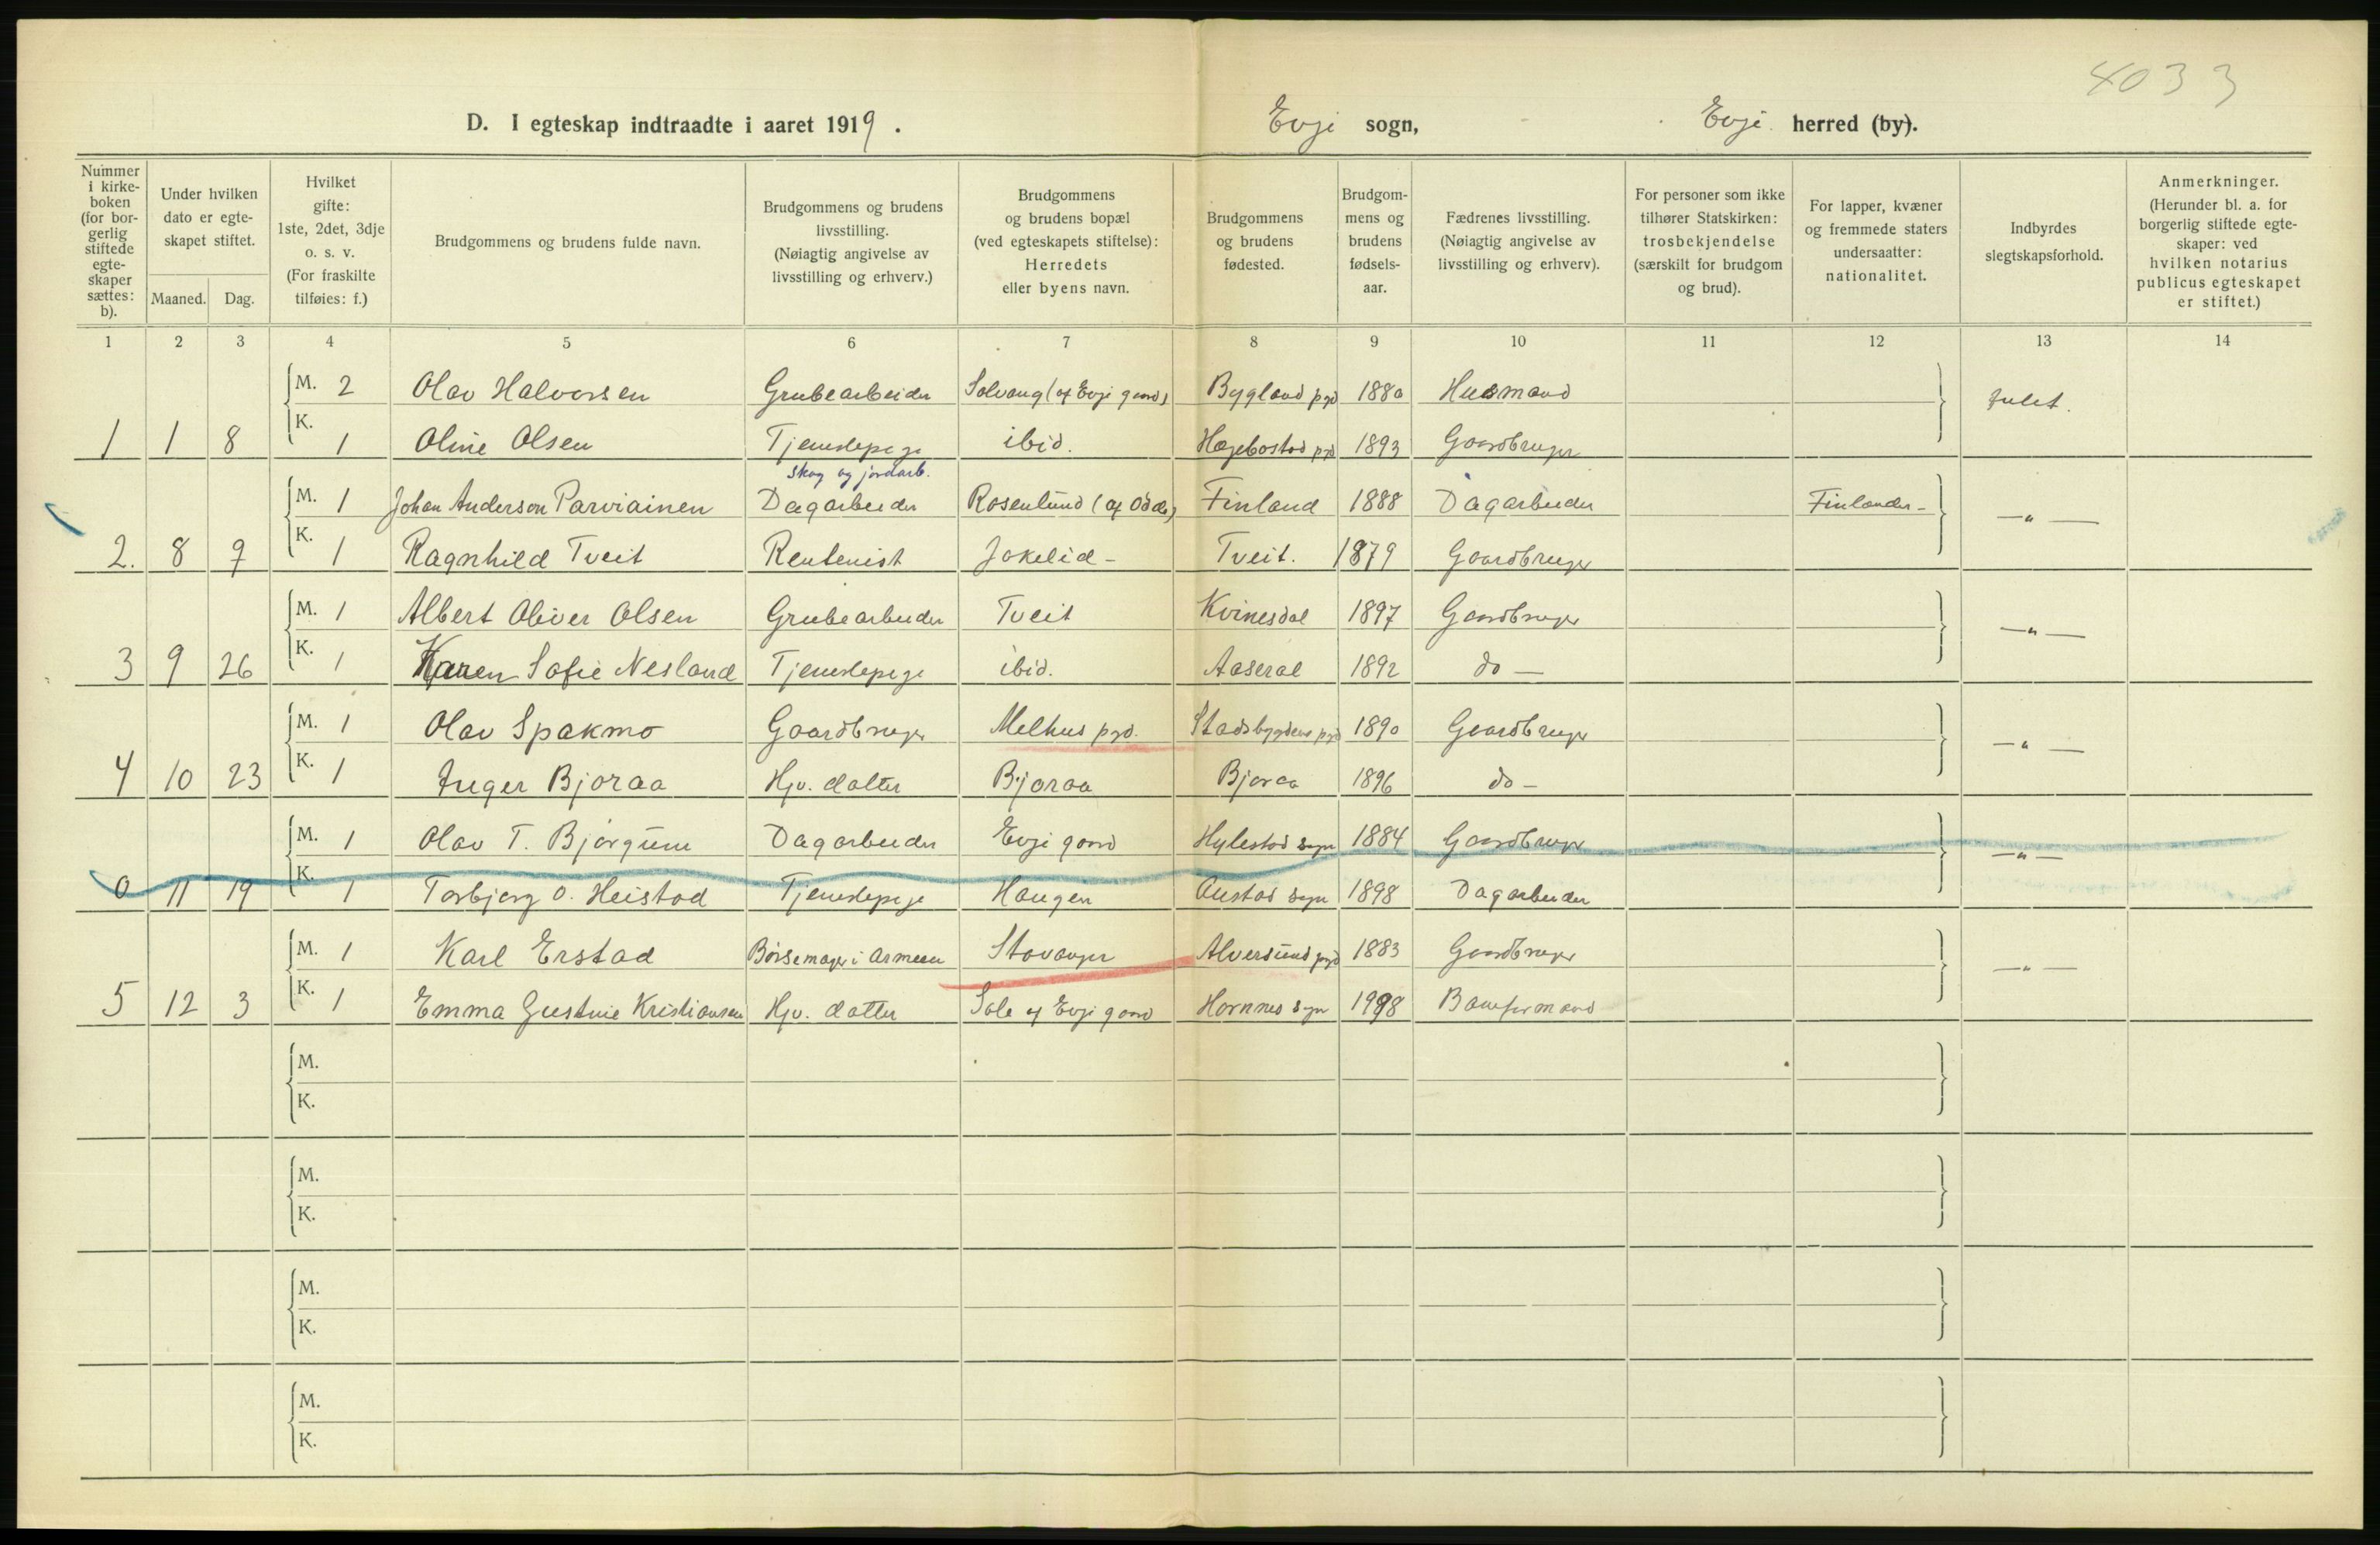 4033
D. I egteskap indtraadte i aaret 1919. Evje sogn, Evje herred (by).
Nummer i kirkeboken (for borgerlig stiftede egteskaper sættes: b).
Under hvilken dato er egteskapet stiftet.
Maaned. Dag.
Hvilket gifte: 1ste, 2det, 3dje o. s. v. (For fraskilte tilføies: f.)
Brudgommens og brudens fulde navn.
Brudgommens og brudens livsstilling. (Nøiagtig angivelse av livsstilling og erhverv.)
Brudgommens og brudens bopæl (ved egteskapets stiftelse): Herredets eller byens navn.
Brudgommens og brudens fødested.
Brudgommens og brudens fødselsaar.
Fædrenes livsstilling. (Nøiagtig angivelse av livsstilling og erhverv).
For personer som ikke tilhører Statskirken: trosbekjendelse (særskilt for brudgom og brud).
For lapper, kvæner og fremmede staters undersaatter: nationalitet.
Indbyrdes slegtskapsforhold.
Anmerkninger. (Herunder bl. a. for borgerlig stiftede egteskaper: ved hvilken notarius publicus egteskapet er stiftet.)
1 2 3 4 5 6 7 8 9 10 11 12 13 14
M. 2 Olav Halvorsen Grubearbeider Solvang (af Evje gaard) Bygland pgd 1880 Husmand Intet.
1 1 8 K. 1 Oline Olsen Tjenestepige ibid. Hægebostad pgd 1893 Gaardbruger
skog og jordarb.
M. 1 Johan Anderson Parviainen Dagarbeider Rosenlund (af Odde) Finland 1888 Dagarbeider Finlænder - — " —
2. 8 9 K. 1 Ragnhild Tveit Rentenist Jokelid - Tveit. 1879 Gaardbruger
M. 1 Albert Oliver Olsen Grubearbeider Tveit Kvinesdal 1897 Gaardbruger — " —
3 9 26 K. 1 Karen Sofie Nesland Tjenestepige ibid. Aaseral 1892 do —
M. 1 Olav Spakmo Gaardbruger Melhus pgd. Stadsbygdens pgd 1890 Gaardbruger — " —
4 10 23 K. 1 Inger Bjoraa Hjv. datter Bjoraa Bjoraa 1896 do -
M. 1 Olav T. Bjørgum Dagarbeider Evje gaard Hylestad sogn 1884 Gaardbruger — " —
0 11 19 K. 1 Torbjørg O. Heistad Tjenestepige Haugen Austad sogn 1898 Dagarbeider
M. 1 Karl Erstad Børsemager i armeen Stavanger Alversund pgd 1883 Gaardbruger — " —
5 12 3 K. 1 Emma Gustine Kristiansen Hjv. datter Sole af Evje gaard Hornnes sogn 1998 Baneformand
M.
K.
M.
K.
M.
K.
M.
K.